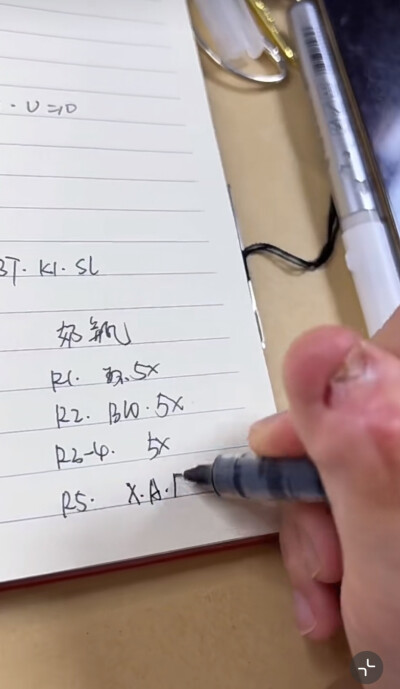 · U =10
BT. K1. SL
奶瓶
R1. 5X
R2. B10. 5X
R3-4. 5X
R5. X. A.